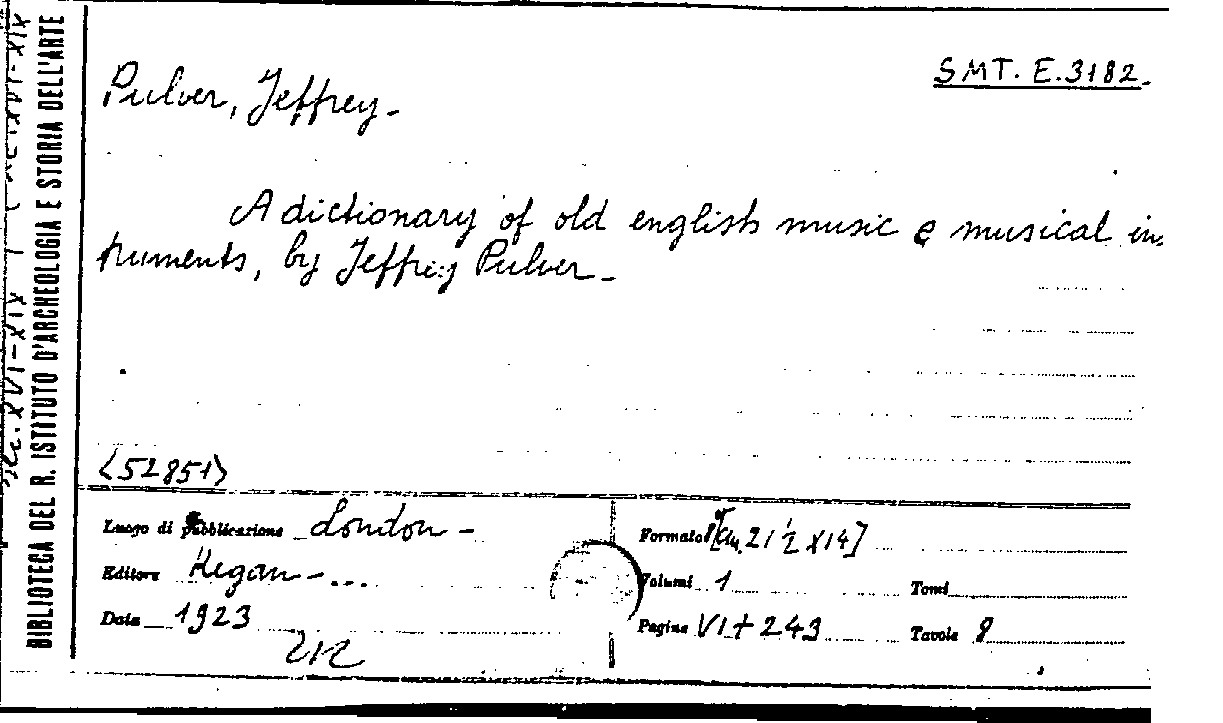 SMT. E.3182.
Pulver, Jeffrey.-
A dictionary of old english music e musical ins
truments, by Jeffrey Pulver.-
<52851>
Luogo di pubblicazione London -
Editore Kegan - ...
Data 1923
Formato 8° [cm. 21 ½ x 14]
Volumi 1 Tomi
Pagine VI + 243 Tavole 8
BIBLIOTECA DEL R. ISTITUTO D'ARCHEOLOGIA E STORIA DELL'ARTE
XVI-XIX